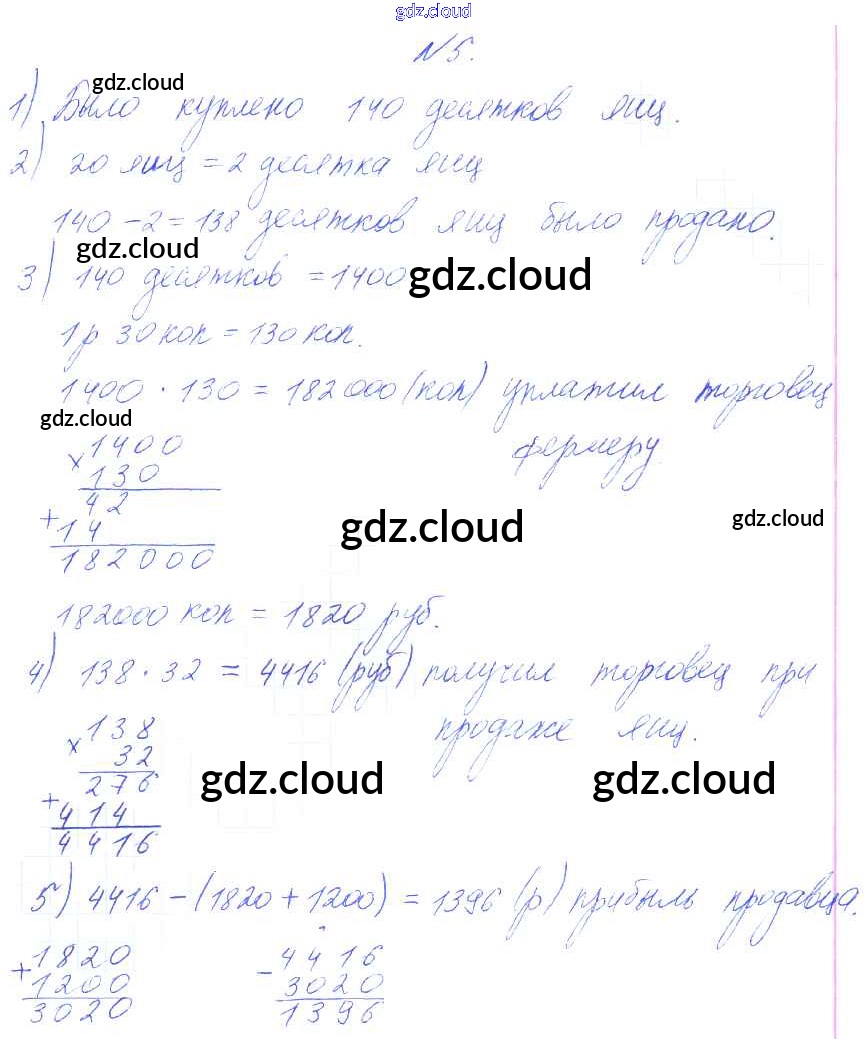 gdz.cloud
№5.
gdz.cloud
1) Было куплено 140 десятков яиц.
2) 20 яиц = 2 десятка яиц
140 - 2 = 138 десятков яиц было продано.
gdz.cloud
3) 140 десятков = 1400 gdz.cloud
1р 30 коп = 130 коп.
1400 · 130 = 182000 (коп) уплатил торговец
gdz.cloud
фермеру.
× 1400
130
42
+ 14
182000
gdz.cloud gdz.cloud
182000 коп = 1820 руб.
4) 138 · 32 = 4416 (руб) получил торговец при
продаже яиц.
× 138
32
276
+ 414
4416
gdz.cloud gdz.cloud
5) 4416 - (1820 + 1200) = 1396 (р) прибыль продавца.
+ 1820 - 4416
1200 3020
3020 1396